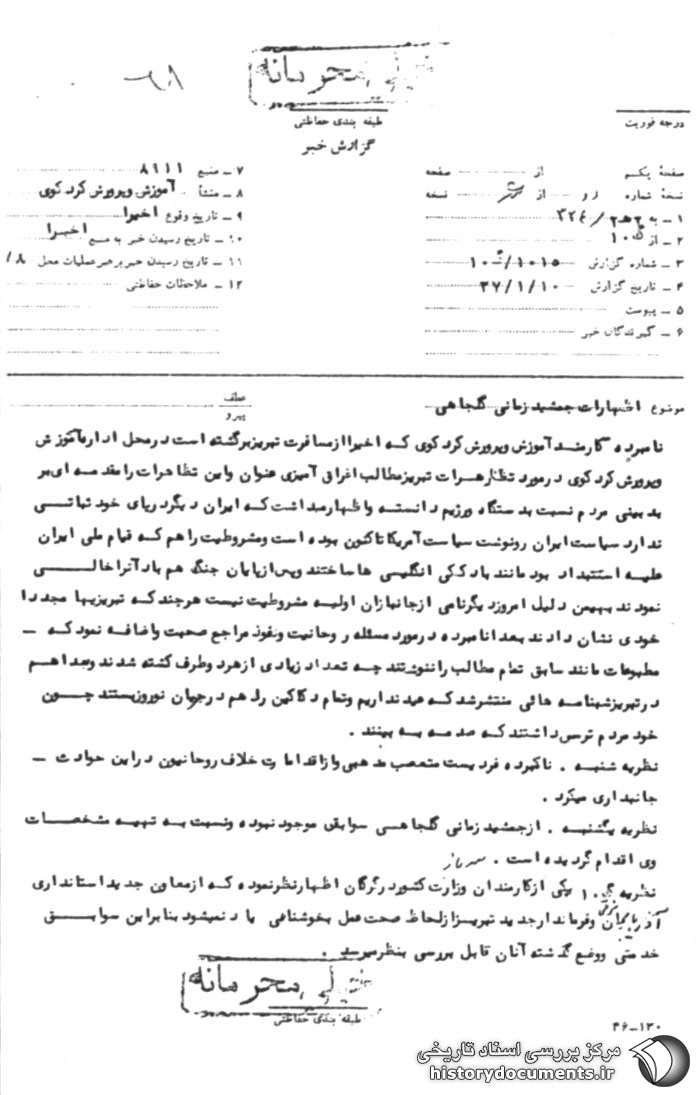 خیلی محرمانه
طبقه بندی حفاظتی
گزارش خبر
درجه فوریت
صفحه یکم از صفحه
نسخه شماره دو از نسخه
۱ـ به ۳۲۴
۲ـ از
۳ـ شماره گزارش
۴ـ تاریخ گزارش ۳۷/۱/۱۰
۵ـ پیوست
۶ـ گیرندگان خبر
۷ـ منبع ۸۱۱۱
۸ـ منشأ آموزش وپرورش کرد کوی
۹ـ تاریخ وقوع اخیرا
۱۰ـ تاریخ رسیدن خبر به منبع اخیرا
۱۱ـ تاریخ رسیدن خبر برهبر عملیات محل
۱۲ـ ملاحظات حفاظتی
موضوع اظهارات جمشید زمانی گلجاهی
عطف
پیرو
نامبرده کارمند آموزش وپرورش کرد کوی که اخیرا از مسافرت تبریز برگشته است در محل اداره آموزش
وپرورش کرد کوی در مورد تظاهرات تبریز مطالب اغراق آمیزی عنوان و این تظاهرات را مقدمه ای بر
بدبینی مردم نسبت بدستگاه ورژیم دانسته و اظهار میداشت که ایران دیگر در پای خود ثباتی
ندارد سیاست ایران رونوشت سیاست آمریکا تاکنون بوده است ومشروطیت را هم که قیام ملی ایران
علیه استبداد بود مانند بادکنکی انگلیسی ها ساختند وپس از پایان جنگ هم باد آنرا خالی
نمودند بهمین دلیل امروز دیگر نامی از جانبازان اولیه مشروطیت نیست هرچند که تبریزیها مجددا
خودی نشان دادند بعدا نامبرده در مورد مسئله روحانیت ونفوذ مراجع صحبت واضافه نمود که ـ
مطبوعات مانند سابق تمام مطالب را ننوشتند چه تعداد زیادی از هرد وطرف کشته شدند وبعدا هم
در تبریز شبنامه هائی منتشر شد که عید نداریم وتمام دکاکین را هم در جریان نوروز بستند چون
خود مردم ترس داشتند که صدمه به بینند .
نظریه شنبه . نامبرده فردیست متعصب مذهبی واز اقدامات خلاف روحانیون در این حوادث ـ
جانبداری میکرد .
نظریه یکشنبه . از جمشید زمانی گلجاهی سوابقی موجود نبوده ونسبت به تهیه مشخصات
وی اقدام گردیده است .
نظریه ۱۰ یکی از کارمندان وزارت کشور در گرگان اظهار نظر نموده که از معاون جدید استانداری
آذربایجان شرقی وفرماندار جدید تبریز از لحاظ صحت عمل بخوشنامی یاد نمیشود بنابراین سوابق
خدمتی ووضع گذشته آنان قابل بررسی بنظر میرسد .
خیلی محرمانه
طبقه بندی حفاظتی
۴۶ـ۱۳۰
مرکز بررسی اسناد تاریخی
historydocuments.ir